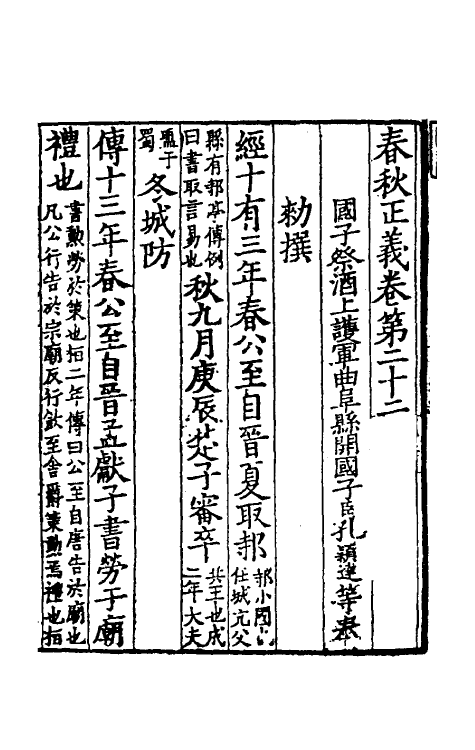 春秋正義卷第二十二
國子祭酒上護軍曲阜縣開國子臣孔穎達等奉
勑撰
經十有三年春公至自晉夏取邿邿小國也任城亢父
縣有邿亭傳例曰書取言易也秋九月庚辰楚子審卒共王也成二年大夫
盟于蜀冬城防
傳十三年春公至自晉孟獻子書勞于廟
禮也書勳勞於策也桓二年傳曰公至自唐告於廟也凡公行告於宗廟反行飲至舍爵策勳焉禮也桓